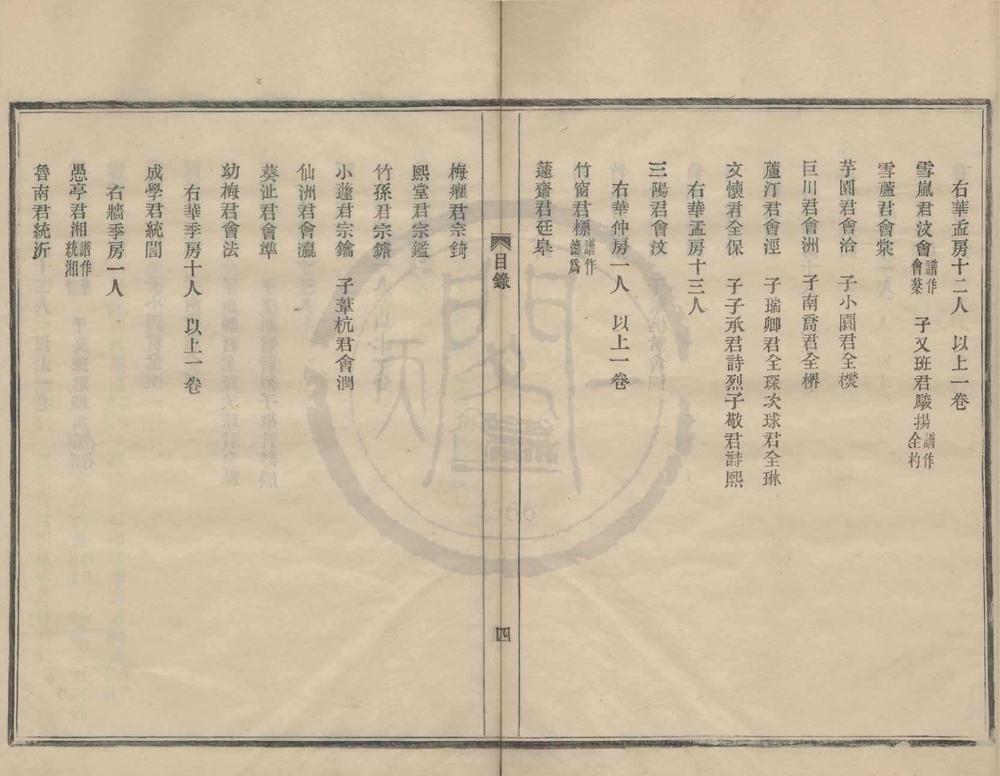 右華孟房十二人　以上一卷
雪嵐君汶會譜作會棻　子又班君駿揚譜作全杓
雪蘆君會棠
芋園君會治　子小園君全樑
巨川君會洲　子南喬君全枬
蘆汀君會涇　子瑞卿君全琛次球君全琳
文懷君全保　子子承君詩烈子敬君詩熙
右華孟房十三人
三陽君會汶
右華仲房一人　以上一卷
竹窗君標譜作德爲
蓮齋君廷皋
目錄
四
梅癯君宗錡
熙堂君宗鑑
竹孫君宗鑣
小蓮君宗鑰　子葦杭君會潤
仙洲君會瀛
葵沚君會準
幼梅君會法
右華季房十人　以上一卷
成學君統誾
右牆季房一人
愚亭君湘譜作統湘
魯南君統沂